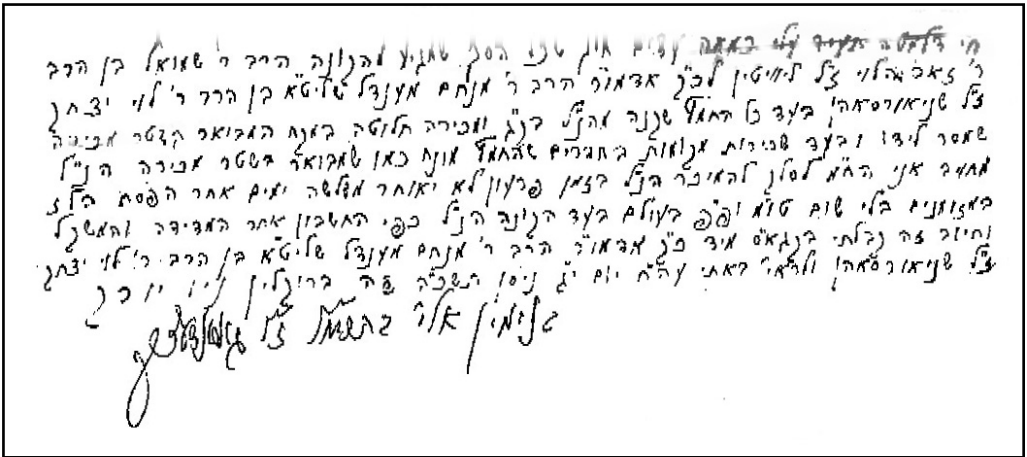 עדים איך שכל הסך שמגיע להקונה הרב ר' שמואל בן הרב
ר' זאב הלוי ז"ל לויטין לכ"ק אדמו"ר הרב ר' מנחם מענדל שליט"א בן הרב ר' לוי יצחק
ז"ל שניאורסאהן בעד כל החמץ שקנה מהנ"ל בק"ג ומכירה חלוטה במקח המבואר בשטר מכירה
שמסר לידו ובעד שכירות מקומות בחדרים שהחמץ מונח כאו שמבואר בשטר מכירה הנ"ל
מחויב אני הח"מ לסלק להמוכר הנ"ל בזמן פרעון לא יאוחר משלשה ימים אחר הפסח הבע"ל
במזומנים בלי שום טו"מ ופ"פ בעולם בעד הקונה הנ"ל כפי החשבון אחר המדידה והמשקל
וחיוב זה קבלתי בקגא"ס מיד כ"ק אדמו"ר הרב ר' מנחם מענדל שליט"א בן הרב ר' לוי יצחק
ז"ל שניאורסאהן ולראי' באתי עה"ח יום י"ג ניסן תשכ"ה פה ברוקלין ניו יורק
בנימין אלי'